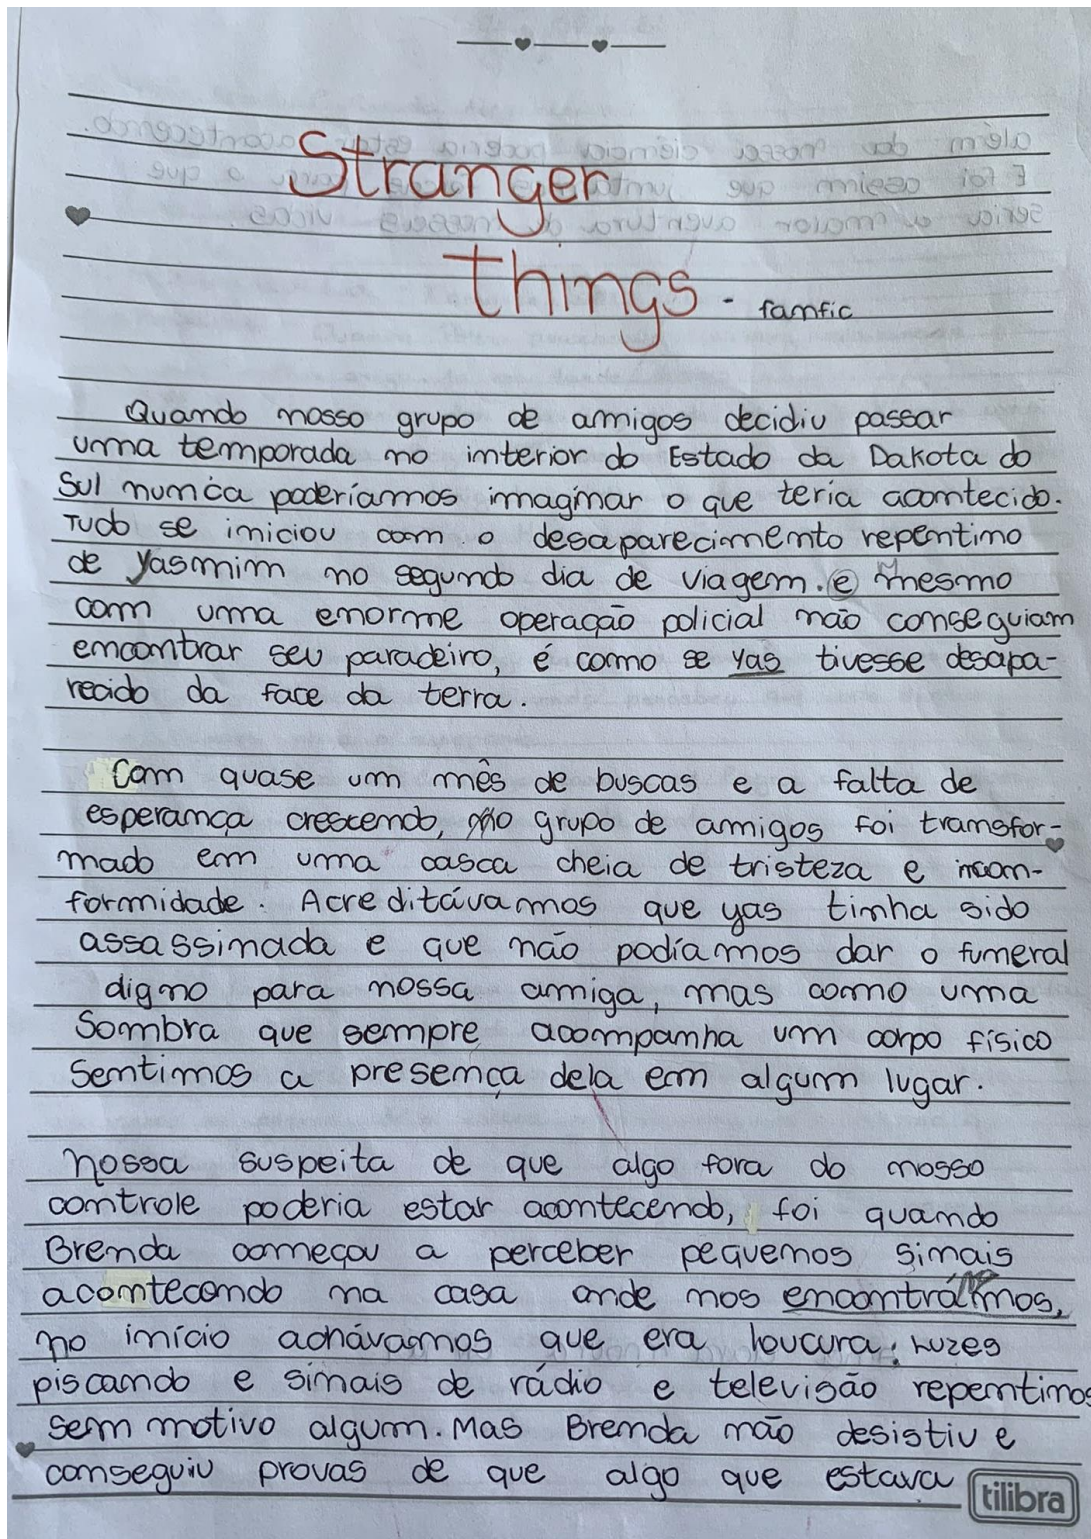 Stranger
things - fanfic
Quando nosso grupo de amigos decidiu passar
uma temporada no interior do Estado da Dakota do
Sul nunca poderíamos imaginar o que teria acontecido.
Tudo se iniciou com o desaparecimento repentino
de Yasmim no segundo dia de viagem. e mesmo
com uma enorme operação policial não conseguiam
encontrar seu paradeiro, é como se yas tivesse desapa-
recido da face da terra.
Com quase um mês de buscas e a falta de
esperança crescendo, o grupo de amigos foi transfor-
mado em uma casca cheia de tristeza e incon-
formidade. Acreditávamos que yas tinha sido
assassinada e que não podíamos dar o funeral
digno para nossa amiga, mas como uma
Sombra que sempre acompanha um corpo físico
Sentimos a presença dela em algum lugar.
Nossa suspeita de que algo fora do nosso
controle poderia estar acontecendo, foi quando
Brenda começou a perceber pequenos sinais
acontecendo na casa onde nos encontrámos,
no início achávamos que era loucura: Luzes
piscando e sinais de rádio e televisão repentinos
Sem motivo algum. Mas Brenda não desistiu e
conseguiu provas de que algo que estava
tilibra